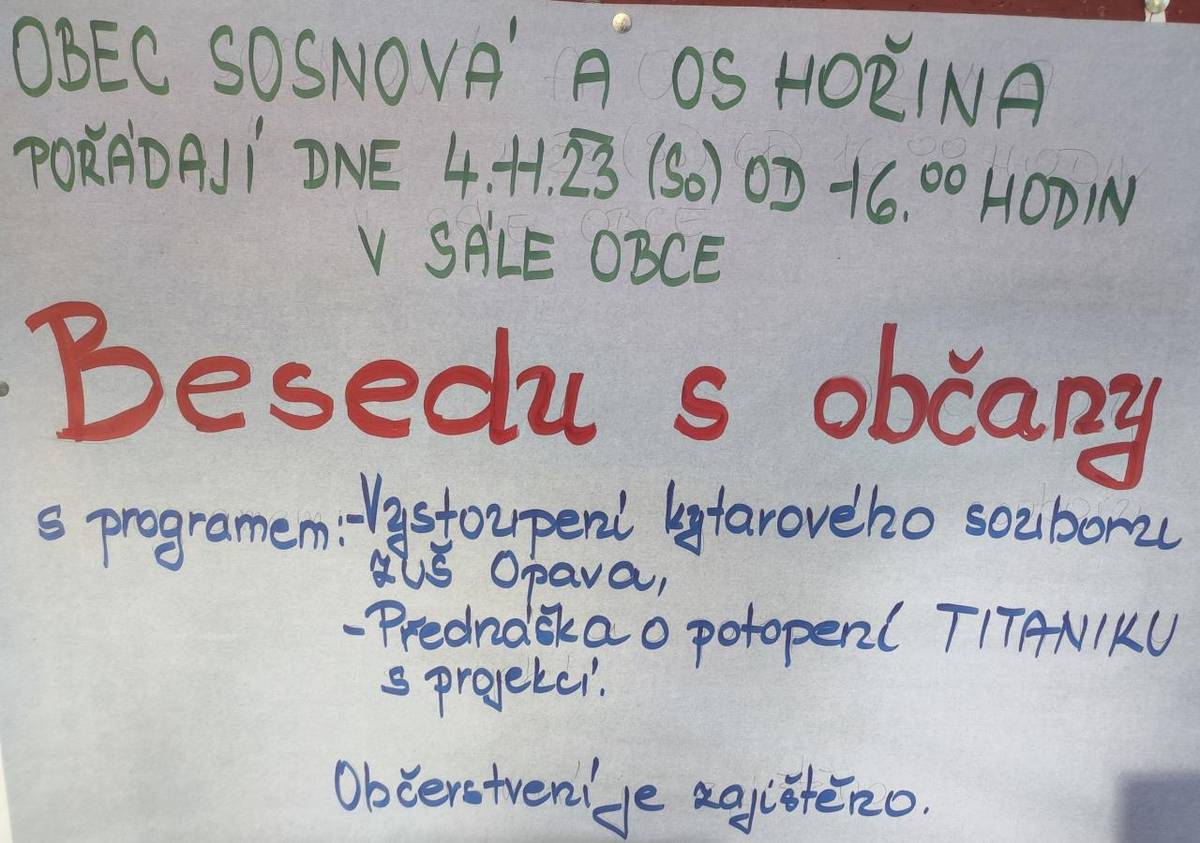 OBEC SOSNOVÁ A OS HOŘINA
POŘÁDAJÍ DNE 4.11.23 (SO) OD 16.00 HODIN
V SÁLE OBCE
Besedu s občany
s programem:-Vystoupení kytarového souboru
ZUŠ Opava,
-Přednáška o potopení TITANIKU
s projekcí.
Občerstvení je zajištěno.